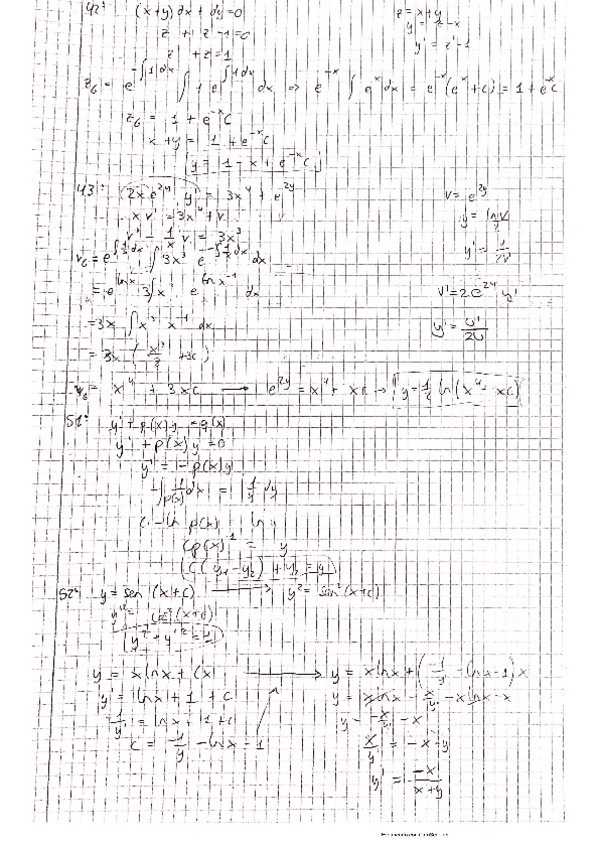 42: (x+y)dx + dy = 0
z = x+y
z' + z - 1 = 0
y' = z' - 1
z' + z = 1
z_G = e^{-∫1dx} ∫ 1 e^{∫1dx} dx ⇒ e^{-x} ∫ e^x dx = e^{-x}(e^x + C) = 1 + e^{-x}C
z_G = 1 + e^{-x}C
x + y = 1 + e^{-x}C
y = 1 - x + e^{-x}C
43: 2x e^{2y} y' = 3x^4 + e^{2y}
v = e^{2y}
x v' = 3x^4 + v
v' - 1/x v = 3x^3
v_G = e^{∫1/x dx} ∫ 3x^3 e^{-∫1/x dx} dx
= e^{ln x} 3∫x^3 e^{ln x^{-1}} dx
v' = 2e^{2y} y'
= 3x ∫ x^3 x^{-1} dx
= 3x ( +3C)
v_G = x^4 + 3xC → e^{2y} = x^4 + xC → y = 1/2 ln(x^4 + xC)
51: y' + p(x)y = q(x)
y' + p(x)y = 0
y' = -p(x)y
-∫ 1/p(x) dx = ∫ 1/y dy
C - ln p(x) = ln y
C p(x)^{-1} = y
C(y_1 - y_2) + y_1 = y
52: y = sen(x+c) → y^2 = sen^2(x+c)
y'^2 = cos^2(x+c)
y^2 + y'^2 = 1
y = x ln x + Cx → y = x ln x + (-1/y' - ln x - 1)x
y' = ln x + 1 + C
y = x ln x - x/y' - x ln x - x
-1/y' = ln x + 1 + C
y = -x/y' - x
C = -1/y' - ln x - 1
x/y' = -x - y
y' = -x/(x+y)